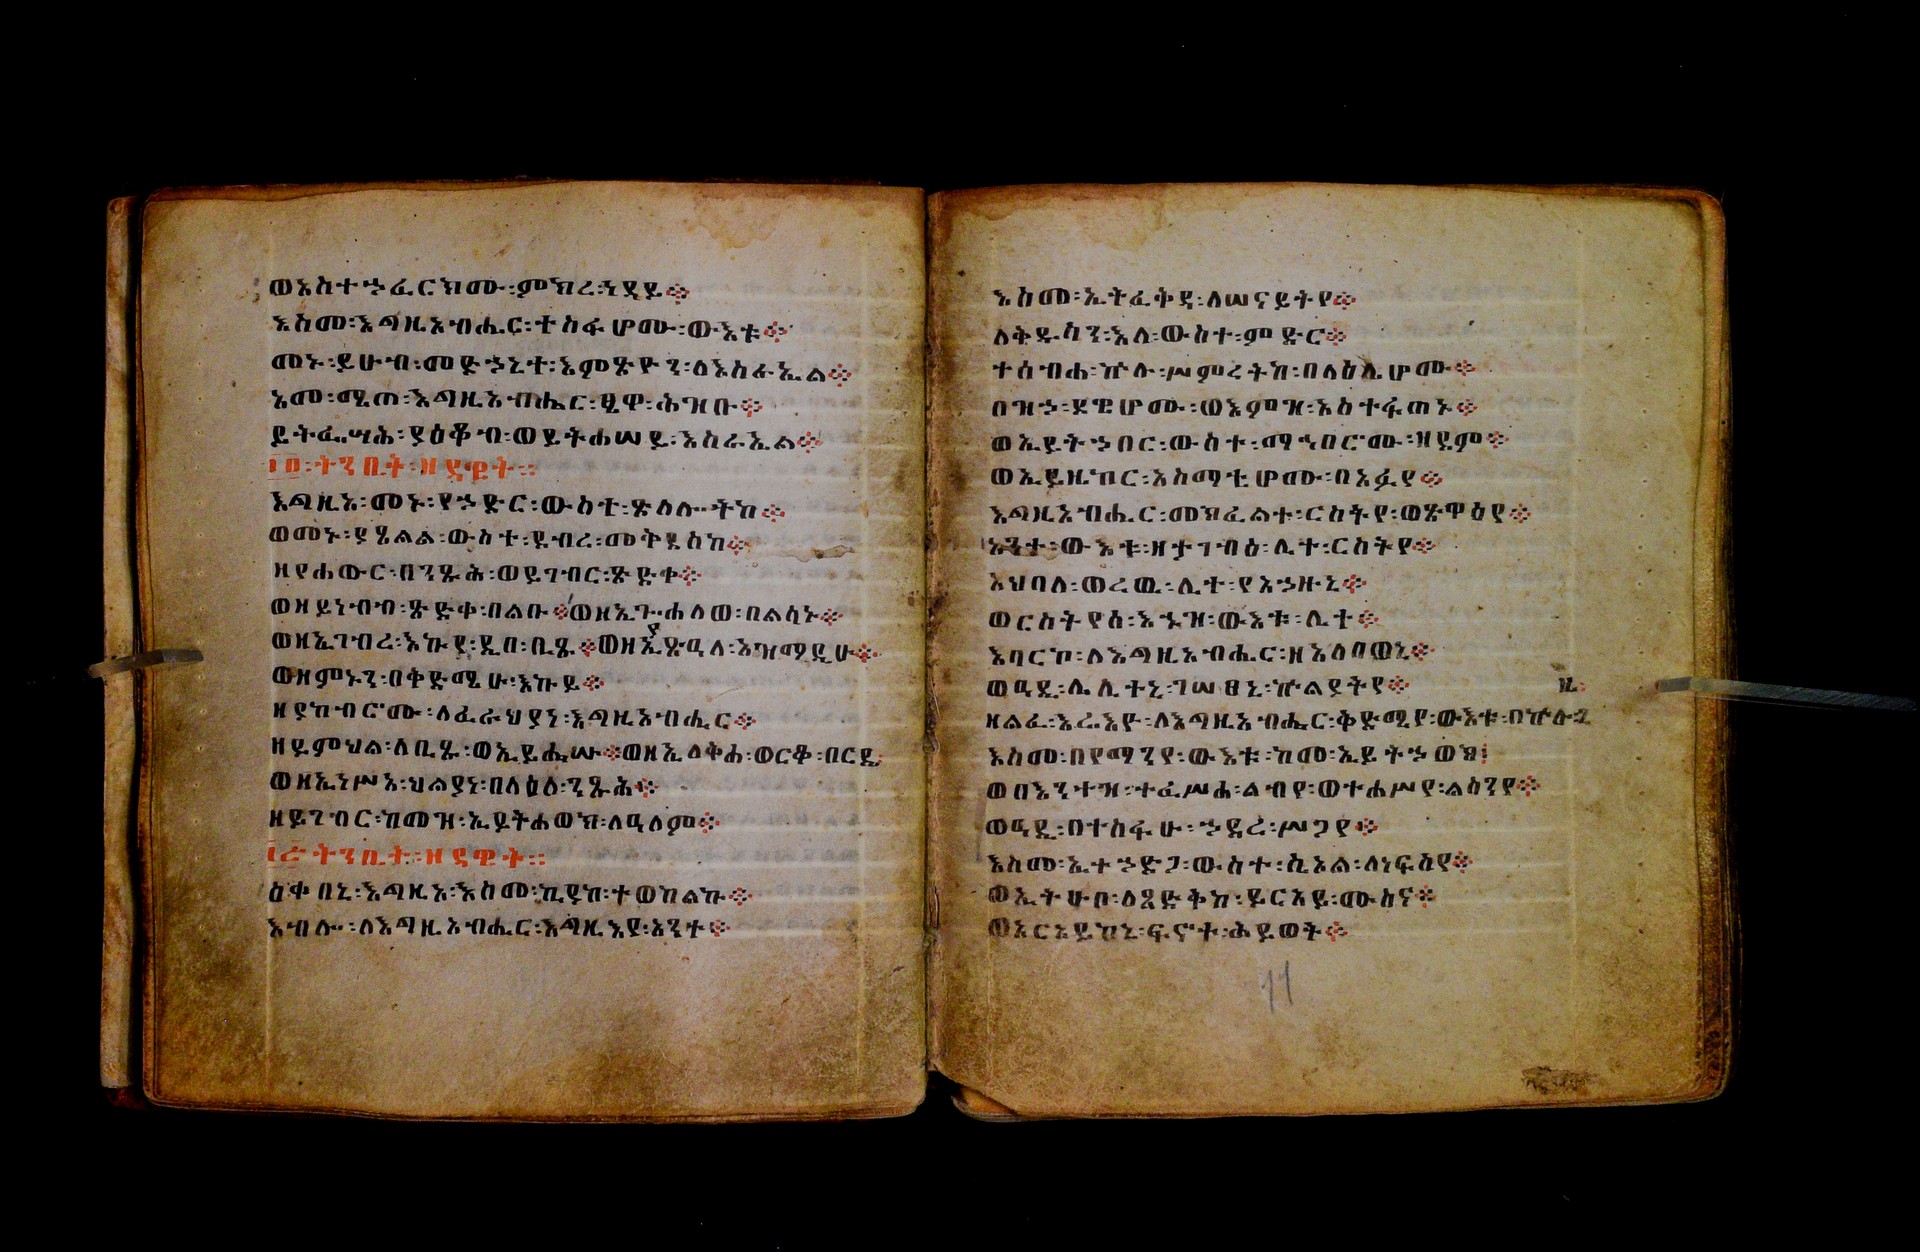 ወአስተኃፈርክሙ፡ምክረ፡ነዳይ፨
እስመ፡እግዚአብሔር፡ተስፋሆሙ፡ውእቱ፨
መኑ፡ይሁብ፡መድኃኒተ፡እምጽዮን፡ለእስራኤል፨
አመ፡ሜጠ፡እግዚአብሔር፡ፄዋ፡ሕዝቡ፨
ይትፌሣሕ፡ያዕቆብ፡ወይትሐሠይ፡እስራኤል፨
፲፬፡ትንቢት፡ዘዳዊት፡፡
እግዚአ፡መኑ፡የኃድር፡ውስተ፡ጽላሎትከ፨
ወመኑ፡ያፄልል፡ውስተ፡ደብረ፡መቅደስከ፨
ዘየሐውር፡በንጹሕ፡ወይገብር፡ጽድቀ፨
ወዘይነብብ፡ጽድቀ፡በልቡ፨ወዘኢጐሐለወ፡በልሳኑ፨
ወዘኢገብረ፡እኩየ፡ዲበ፡ቢጹ፨ወዘኢያጽዓለ፡አዝማዲሁ፨
ወዘምኑን፡በቅድሜሁ፡እኩይ፨
ዘያከብሮሙ፡ለፈራህያነ፡እግዚአብሔር፨
ዘይምህል፡ለቢጹ፡ወኢይሔሡ፨ወዘኢለቅሐ፡ወርቆ፡በርዴ፡
ወዘኢነሥአ፡ህልያነ፡በላዕለ፡ንጹሕ፨
ዘይገብር፡ከመዝ፡ኢይትሐወክ፡ለዓለም፨
፲፭፡ትንቢት፡ዘዳዊት፡፡
ዕቀበኒ፡እግዚአ፡እስመ፡ኪያከ፡ተወከልኩ፨
እብሎ፡ለእግዚአብሔር፡እግዚእየ፡አንተ፨
እስመ፡ኢትፈቅዳ፡ለሠናይትየ፨
ለቅዱሳን፡እለ፡ውስተ፡ምድር፨
ተሰብሐ፡ኵሉ፡ሥምረትከ፡በላዕሌሆሙ፨
በዝኃ፡ደዌሆሙ፡ወእምዝ፡አስተፋጠኑ፨
ወኢይትኃበር፡ውስተ፡ማኅበሮሙ፡ዘደም፨
ወኢይዜከር፡አስማቲሆሙ፡በአፉየ፨
እግዚአብሔር፡መክፈልተ፡ርስትየ፡ወጽዋዕየ፨
አንተ፡ውእቱ፡ዘታገብዕ፡ሊተ፡ርስትየ፨
አህባለ፡ወረዉ፡ሊተ፡የአኃዙኒ፨
ወርስትየሰ፡እኁዝ፡ውእቱ፡ሊተ፨
እባርኮ፡ለእግዚአብሔር፡ዘአለበወኒ፨
ወዓዲ፡ሌሊተኒ፡ገሠፀኒ፡ኵልያትየ፨ ዜ፡
ዘልፈ፡እሬእዮ፡ለእግዚአብሔር፡ቅድሜየ፡ውእቱ፡በኵሉ፡ጊ
እስመ፡በየማንየ፡ውእቱ፡ከመ፡ኢይትኃወክ፡
ወበእንተዝ፡ተፈሥሐ፡ልብየ፡ወተሐሥየ፡ልሳንየ፨
ወዓዲ፡በተስፋሁ፡ኃደረ፡ሥጋየ፨
እስመ፡ኢተኃድጋ፡ውስተ፡ሲኦል፡ለነፍስየ፨
ወኢትሁቦ፡ለጻድቅከ፡ይርአይ፡ሙስና፨
ወአርአይከኒ፡ፍኖተ፡ሕይወት፨
11